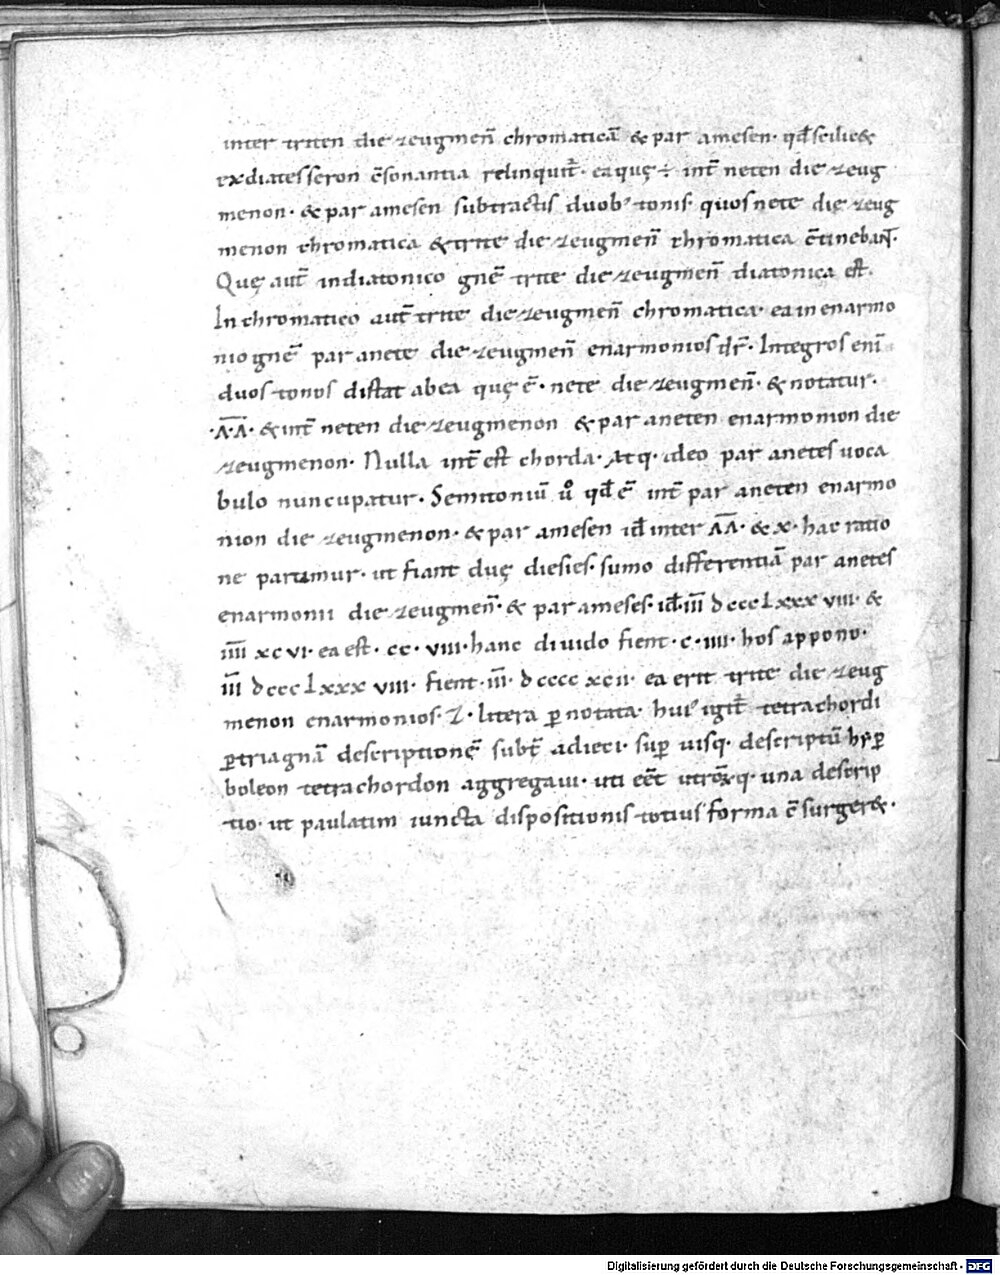 inter triten die zeugmeñ chromaticã & par amesen· qđ scilic&
ex diatesseron c̃sonantia relinquit̃· ea quę ÷ int̃ neten die zeug
menon· & par amesen subtractis duob’ tonis· quos nete die zeug
menon chromatica & trite die zeugmeñ chromatica c̃tinebañt·
Quę aut̃ in diatonico gne͂ trite die zeugmeñ diatonica est̃·
In chromatico aut̃ trite die zeugmeñ chromatica· ea in enarmo
nio gne͂ par anete die zeugmeñ enarmonios dr̃· Integros eni͂
duos tonos distat ab ea quę ẽ· nete die zeugmeñ· & notatur·
·ΛΛ· & int̃ neten die zeugmenon & par aneten enarmonion die
zeugmenon· Nulla int̃ est chorda· Atq· ideo par anetes uoca
bulo nuncupatur· Semitoniũ ů qđ ẽ int̃ par aneten enarmo
nion die zeugmenon· & par amesen iđ inter ΛΛ· & x· hac ratio
ne partimur· ut fiant duę diesies· sumo differentiã par anetes
enarmonii die zeugmeñ· & par ameses· iđ· iii̅ dccclxxxviii· &
iiii̅ xcvi· ea est· cc· viii· hanc diuido fient· c· iiii· hos appono·
iii̅ dccclxxxviii· fient· iii̅· dcccc xcii· ea erit trite die zeug
menon enarmonios· Z· litera ꝑ notata· hui’ igit̃ tetrachordi
ꝑtriagnã descriptionẽ subt̃ adieci· sup̱ uisq· descriptũ hyꝑ
boleon tetrachordon aggregaui· uti eẽt utrõrq· una descrip
tio· ut paulatim iuncta dispositionis totius forma c̃surger&·
Digitalisierung gefördert durch die Deutsche Forschungsgemeinschaft - DFG